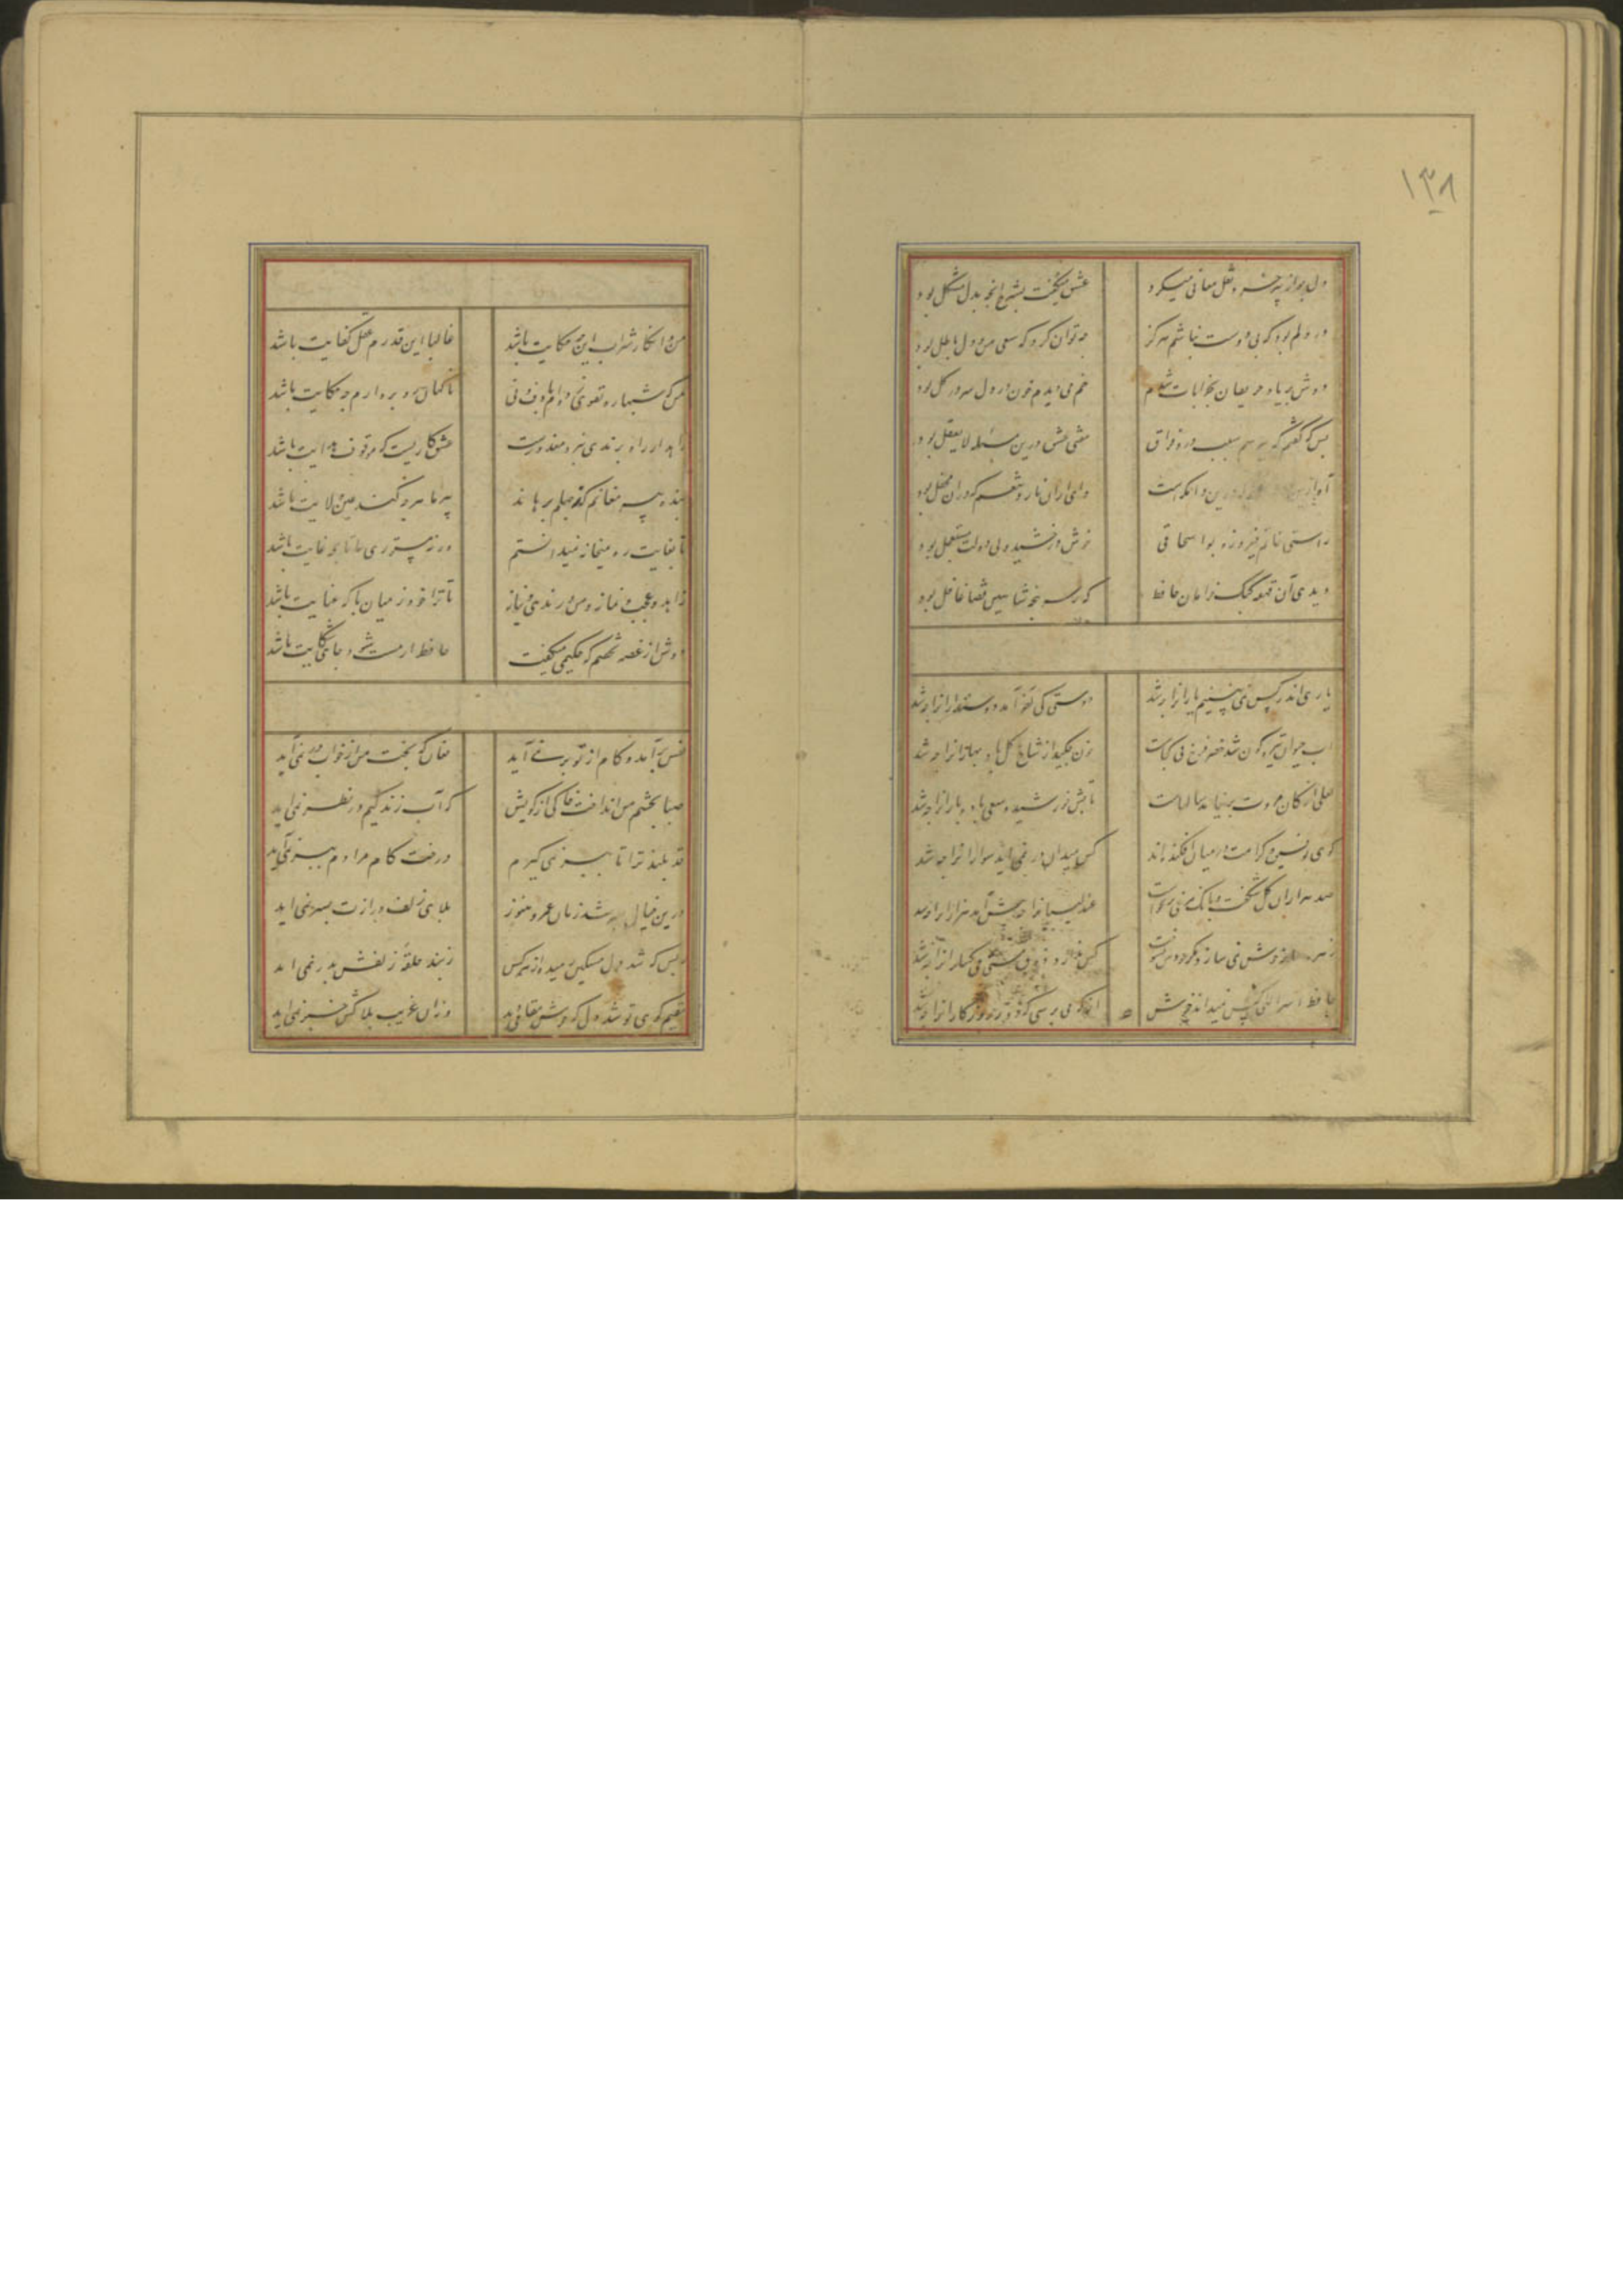 ۱۳۸
دل چو از پیر خرد نقل معانی میکرد عشق میگفت بشرح انچه بدل مشکل بود
در دلم بود که بی دوست نباشم هرگز چه توان کرد که سعی من و دل باطل بود
دوش بر یاد حریفان بخرابات شدم خم می دیدم خون در دل و سر در گل بود
بس که گفتم که بپرسم سبب درد فراق مفتی عشق درین مسئله لایعقل بود
آه ازین درین دامکه است وای ازان ناز و تنعم که دران محفل بود
راستی خاتم فیروزه بواسحاقی خوش درخشید ولی دولت مستعجل بود
دیدی آن قهقهه کبک خرامان حافظ که ز سر پنجه شاهین قضا غافل بود
یاری اندر کس نمی بینیم یارانرا چه شد دوستی کی آخر آمد دوستدارانرا چه شد
اب حیوان تیره گون شد خضر فرخ پی کجاست خون چکید از شاخ گل باد بهارانرا چه شد
لعلی از کان مروت برنیامد سالهاست تابش خورشید و سعی باد و بارانرا چه شد
گوی توفیق و کرامت در میان افکنده اند کس بمیدان در نمی اید سوارانرا چه شد
صد هزاران گل شکفت و بانک مرغی برنخواست عندلیبانرا چه پیش آمد هزارانرا چه شد
زهره سازی خوش نمی سازد مگر عودش بسوخت کس ندارد ذوق مستی میگسارانرا چه شد
حافظ اسرار الهی کس نمیداند خموش از که می پرسی که دور روزگارانرا چه شد
من و انکار شراب این چه حکایت باشد غالبا این قدرم عقل کفایت باشد
من که شبها ره تقوی زده ام با دف و نی ناگهان سر بره ارم چه حکایت باشد
زاهد ار راه برندی نبرد معذورست عشق کاریست که موقوف هدایت باشد
بنده پیر مغانم که ز جهلم برهاند پیر ما هر چه کند عین ولایت باشد
تا بغایت ره میخانه نمیدانستم ورنه مستوری ما تا بچه غایت باشد
زاهد و عجب و نماز و من و رندی و نیاز تا ترا خود ز میان با که عنایت باشد
دوش از غصه نخفتم که حکیمی میگفت حافظ ار مست شود جای شکایت باشد
نفس برآمد و کام از تو بر نمی آید فغان که بخت من از خواب در نمی آید
صبا بچشم من انداخت خاکی از کویش که آب زندگیم در نظر نمی اید
قد بلند ترا تا ببر نمی گیرم درخت کام مرادم ببر نمی آید
درین خیال بسر شد زمان عمر و هنوز بلای زلف درازت بسر نمی اید
ز بس که شد دل مسکین رمیده از همه کس ز بند حلقه زلفش بدر نمی اید
مقیم کوی تو شد دل که خوش مقامی دید وزان غریب بلاکش خبر نمی اید